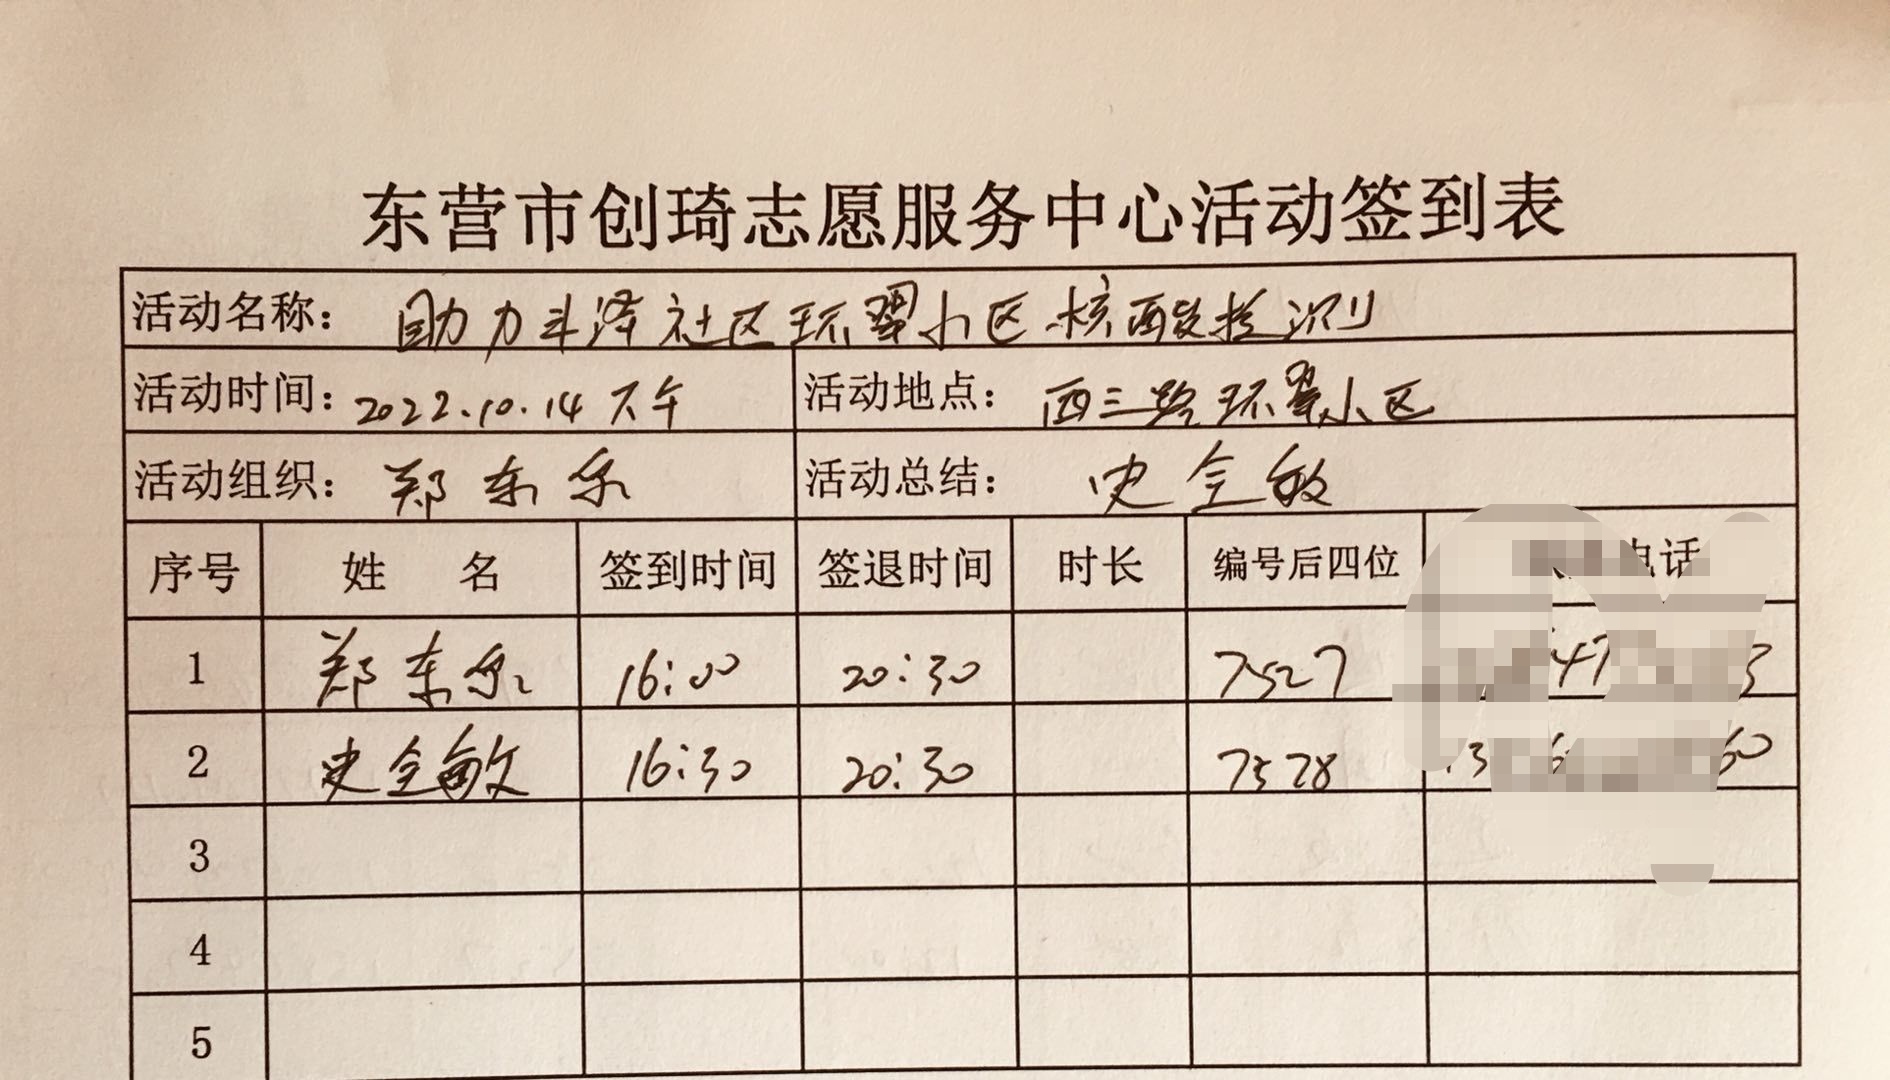 东营市创琦志愿服务中心活动签到表
活动名称： 助力斗泽社区环翠小区核酸检测
活动时间：2022.10.14 下午 活动地点： 西三路环翠小区
活动组织： 郑东乐 活动总结： 史全敏
序号 姓名 签到时间 签退时间 时长 编号后四位 电话
1 郑东乐 16:00 20:30 7527
2 史全敏 16:30 20:30 7528
3
4
5